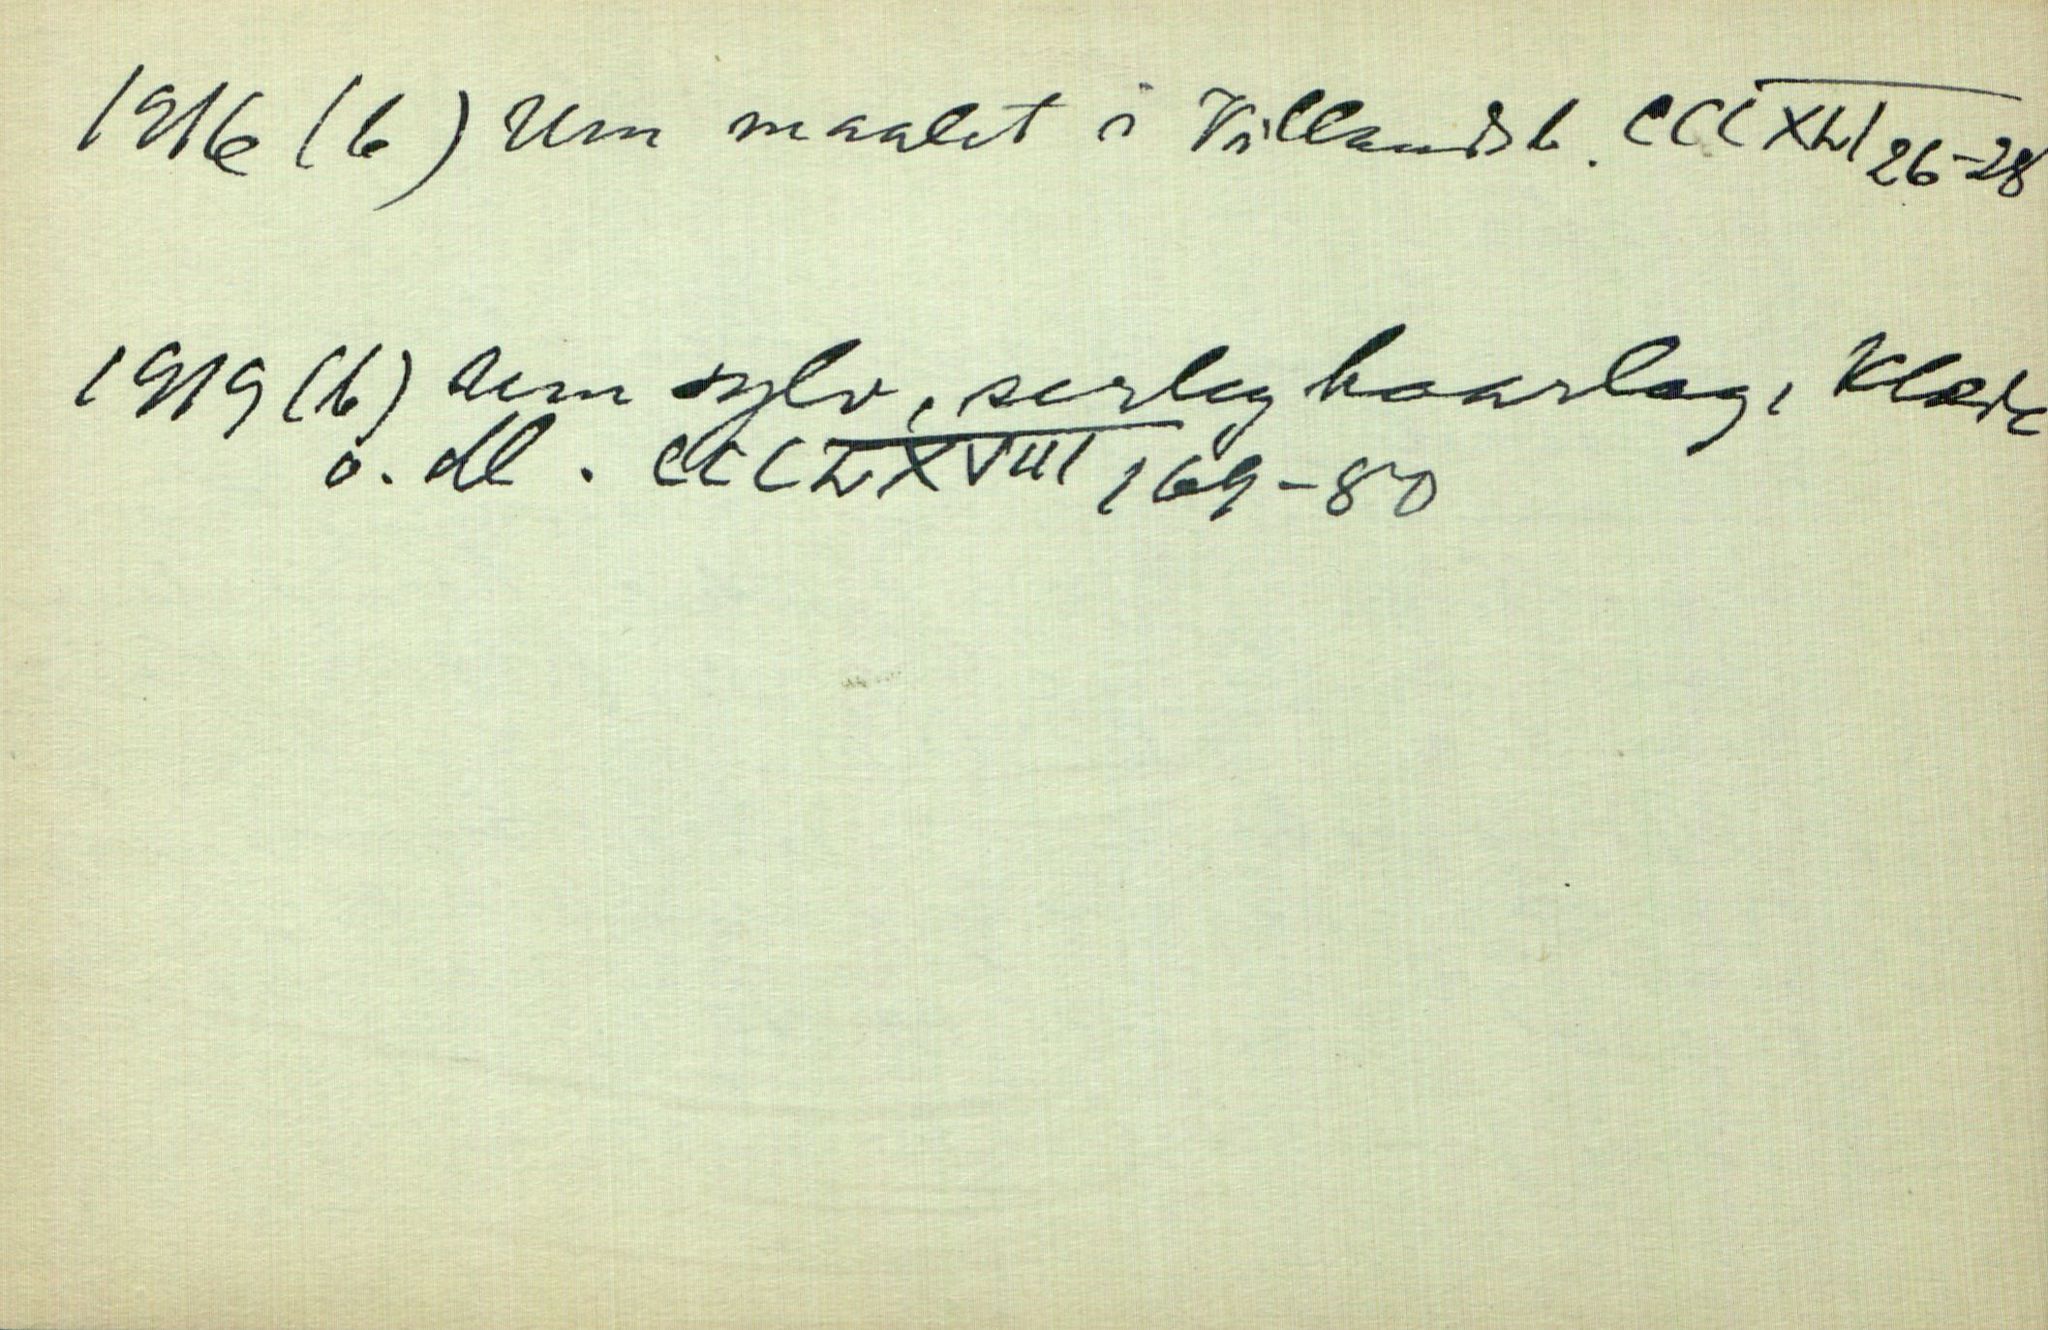 1916 (b) Um maalet i Villandsh. CCCXLI 26-28
1919 (b) Um sylv, serleg haarlag, Klæde
o. dl. CCCLXVIII 169-80